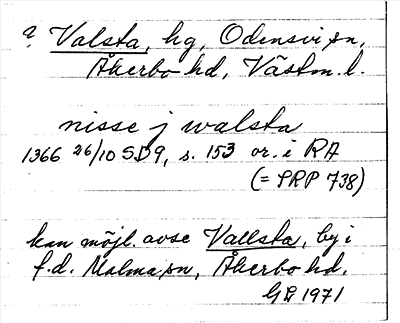 ? Valsta, hg, Odensvi sn,
Åkerbo hd, Västm. l.
nisse j walsta
1366 26/10 SD9, s. 153 or. i RA
(= SRP 738)
kan möjl. avse Vallsta, by i
f.d. Malma sn, Åkerbo hd.
GL 1971